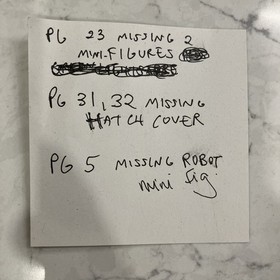 PG 23 MISSING 2
MINI-FIGURES
PG 31, 32 MISSING
HATCH COVER
PG 5 MISSING ROBOT
mini fig.